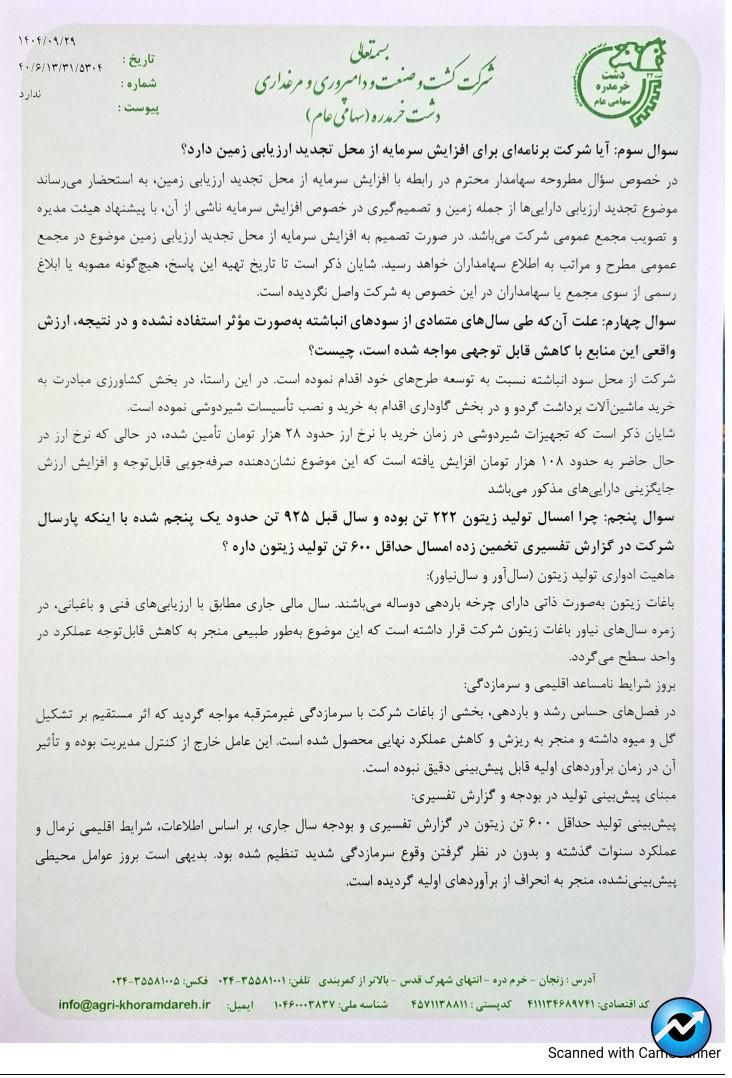 بسمه‌تعالی
شرکت کشت و صنعت و دامپروری و مرغداری
دشت خرمدره (سهامی عام)
دشت
خرمدره
سهامی عام
تاریخ : ۱۴۰۴/۰۹/۲۹
شماره : ۴۰/۶/۱۳/۳۱/۵۳۰۴
پیوست : ندارد
سوال سوم: آیا شرکت برنامه‌ای برای افزایش سرمایه از محل تجدید ارزیابی زمین دارد؟
در خصوص سؤال مطروحه سهامدار محترم در رابطه با افزایش سرمایه از محل تجدید ارزیابی زمین، به استحضار می‌رساند
موضوع تجدید ارزیابی دارایی‌ها از جمله زمین و تصمیم‌گیری در خصوص افزایش سرمایه ناشی از آن، با پیشنهاد هیئت مدیره
و تصویب مجمع عمومی شرکت می‌باشد. در صورت تصمیم به افزایش سرمایه از محل تجدید ارزیابی زمین موضوع در مجمع
عمومی مطرح و مراتب به اطلاع سهامداران خواهد رسید. شایان ذکر است تا تاریخ تهیه این پاسخ، هیچ‌گونه مصوبه یا ابلاغ
رسمی از سوی مجمع یا سهامداران در این خصوص به شرکت واصل نگردیده است.
سوال چهارم: علت آن‌که طی سال‌های متمادی از سودهای انباشته به‌صورت مؤثر استفاده نشده و در نتیجه، ارزش
واقعی این منابع با کاهش قابل توجهی مواجه شده است، چیست؟
شرکت از محل سود انباشته نسبت به توسعه طرح‌های خود اقدام نموده است. در این راستا، در بخش کشاورزی مبادرت به
خرید ماشین‌آلات برداشت گردو و در بخش گاوداری اقدام به خرید و نصب تأسیسات شیردوشی نموده است.
شایان ذکر است که تجهیزات شیردوشی در زمان خرید با نرخ ارز حدود ۲۸ هزار تومان تأمین شده، در حالی که نرخ ارز در
حال حاضر به حدود ۱۰۸ هزار تومان افزایش یافته است که این موضوع نشان‌دهنده صرفه‌جویی قابل‌توجه و افزایش ارزش
جایگزینی دارایی‌های مذکور می‌باشد
سوال پنجم: چرا امسال تولید زیتون ۲۲۲ تن بوده و سال قبل ۹۲۵ تن حدود یک پنجم شده با اینکه پارسال
شرکت در گزارش تفسیری تخمین زده امسال حداقل ۶۰۰ تن تولید زیتون داره ؟
ماهیت ادواری تولید زیتون (سال‌آور و سال‌نیاور):
باغات زیتون به‌صورت ذاتی دارای چرخه باردهی دوساله می‌باشند. سال مالی جاری مطابق با ارزیابی‌های فنی و باغبانی، در
زمره سال‌های نیاور باغات زیتون شرکت قرار داشته است که این موضوع به‌طور طبیعی منجر به کاهش قابل‌توجه عملکرد در
واحد سطح می‌گردد.
بروز شرایط نامساعد اقلیمی و سرمازدگی:
در فصل‌های حساس رشد و باردهی، بخشی از باغات شرکت با سرمازدگی غیرمترقبه مواجه گردید که اثر مستقیم بر تشکیل
گل و میوه داشته و منجر به ریزش و کاهش عملکرد نهایی محصول شده است. این عامل خارج از کنترل مدیریت بوده و تأثیر
آن در زمان برآوردهای اولیه قابل پیش‌بینی دقیق نبوده است.
مبنای پیش‌بینی تولید در بودجه و گزارش تفسیری:
پیش‌بینی تولید حداقل ۶۰۰ تن زیتون در گزارش تفسیری و بودجه سال جاری، بر اساس اطلاعات، شرایط اقلیمی نرمال و
عملکرد سنوات گذشته و بدون در نظر گرفتن وقوع سرمازدگی شدید تنظیم شده بود. بدیهی است بروز عوامل محیطی
پیش‌بینی‌نشده، منجر به انحراف از برآوردهای اولیه گردیده است.
آدرس : زنجان - خرم دره - انتهای شهرک قدس - بالاتر از کمربندی تلفن: ۳۵۵۸۱۰۰۱-۰۲۴ فکس: ۳۵۵۸۱۰۰۵-۰۲۴
کد اقتصادی: ۴۱۱۱۳۴۶۸۹۷۴۱ کدپستی : ۴۵۷۱۱۳۸۸۱۱ شناسه ملی: ۱۰۴۶۰۰۰۳۸۳۷ ایمیل: info@agri-khoramdareh.ir
Scanned with CamScanner